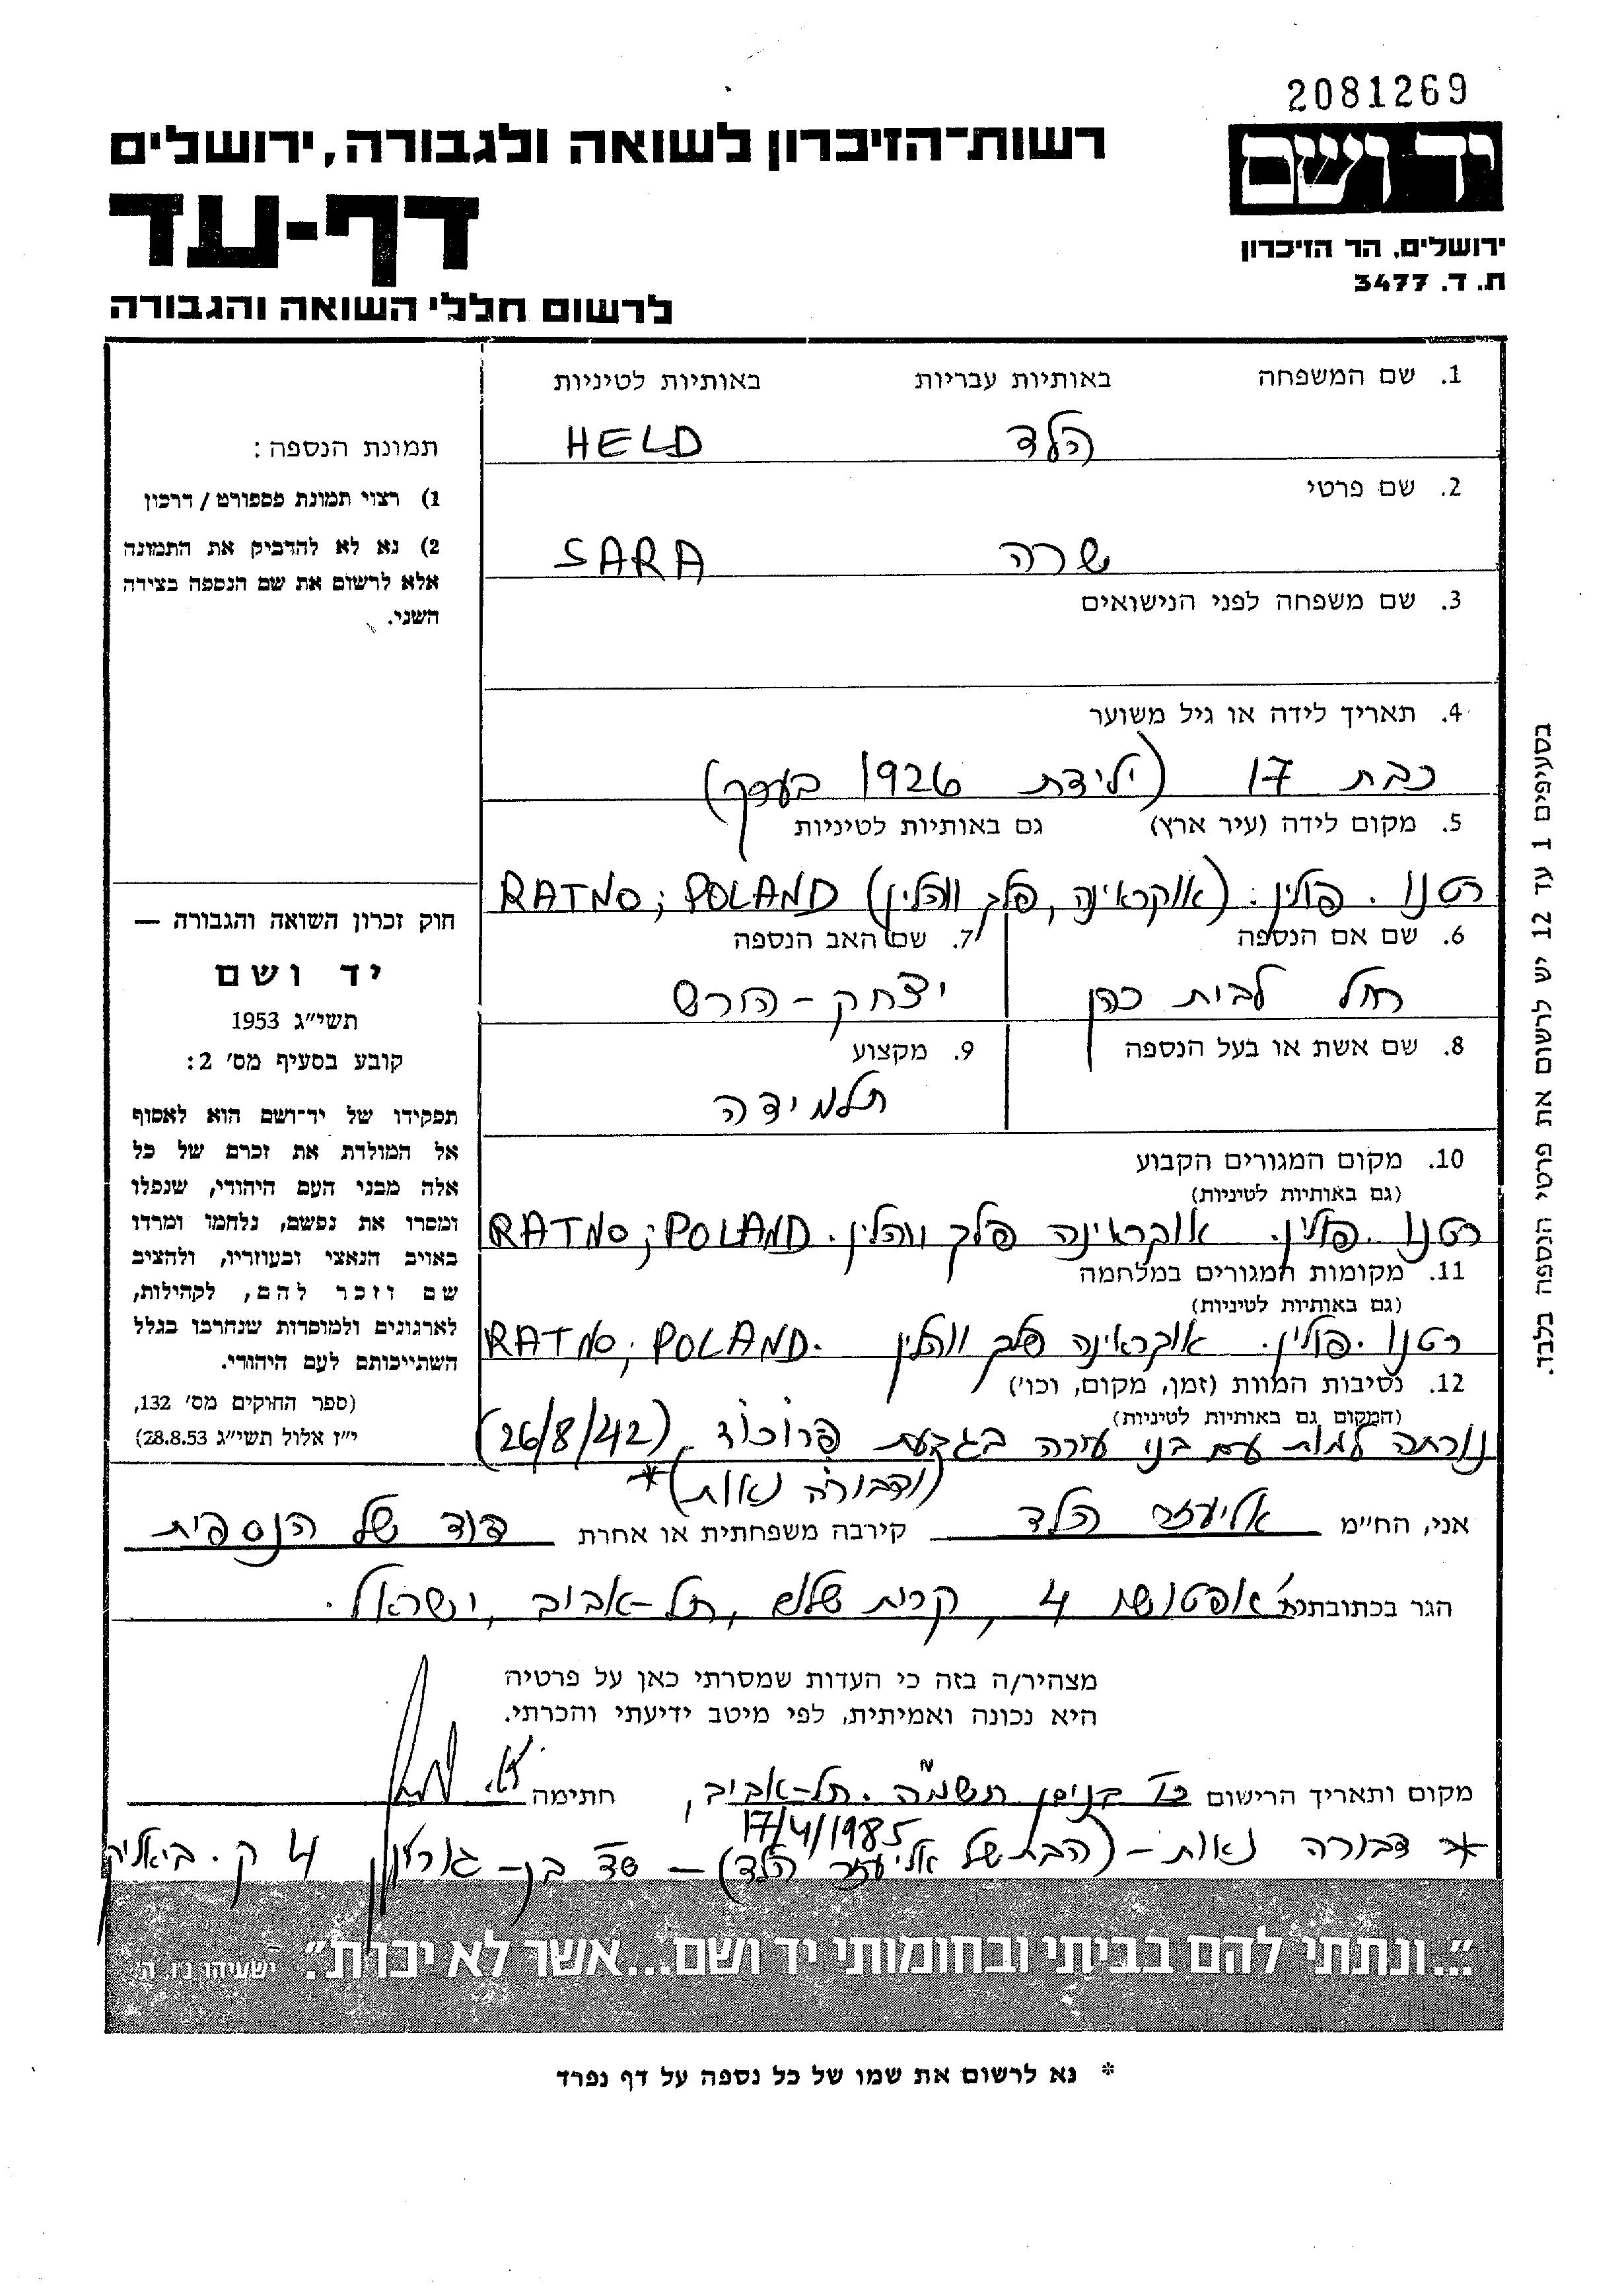 2081269
יד ושם
ירושלים, הר הזיכרון
ת. ד. 3477
רשות־הזיכרון לשואה ולגבורה, ירושלים
דף-עד
לרשום חללי השואה והגבורה
1. שם המשפחה באותיות עבריות באותיות לטיניות
הלד HELD
2. שם פרטי
שרה SARA
3. שם משפחה לפני הנישואים
4. תאריך לידה או גיל משוער
כבת 17 (ילידת 1926 בערך)
5. מקום לידה (עיר ארץ) גם באותיות לטיניות
רטנו. פולין. (אוקראינה, פלך ווהלין) RATNO; POLAND
6. שם אם הנספה 7. שם האב הנספה
רחל לבית כהן יצחק-הרש
8. שם אשת או בעל הנספה 9. מקצוע
תלמידה
10. מקום המגורים הקבוע
(גם באותיות לטיניות)
רטנו. פולין. אוקראינה פלך ווהלין. RATNO; POLAND
11. מקומות המגורים במלחמה
(גם באותיות לטיניות)
רטנו. פולין. אוקראינה פלך ווהלין RATNO; POLAND.
12. נסיבות המוות (זמן, מקום, וכו')
(המקום גם באותיות לטיניות)
נורתה למות עם בני עירה בגבעת פרוכוד. (26/8/42)
תמונת הנספה:
1) רצוי תמונת פספורט/דרכון
2) נא לא להדביק את התמונה
אלא לרשום את שם הנספה בצידה
השני.
חוק זכרון השואה והגבורה —
יד ושם
תשי"ג 1953
קובע בסעיף מס' 2:
תפקידו של יד־ושם הוא לאסוף
אל המולדת את זכרם של כל
אלה מבני העם היהודי, שנפלו
ומסרו את נפשם, נלחמו ומרדו
באויב הנאצי ובעוזריו, ולהציב
שם וזכר להם, לקהילות,
לארגונים ולמוסדות שנחרבו בגלל
השתייכותם לעם היהודי.
(ספר החוקים מס' 132,
י"ז אלול תשי"ג 28.8.53)
בסעיפים 1 עד 12 יש לרשום את פרטי הנספה בלבד.
(ודבורה נאות)*
אני, החי"מ אליעזר הלד קירבה משפחתית או אחרת דוד של הנספית
הגר בכתובת רח' אפטושו 4, קרית שלום, תל-אביב, ישראל.
מצהיר/ה בזה כי העדות שמסרתי כאן על פרטיה
היא נכונה ואמיתית, לפי מיטב ידיעתי והכרתי.
מקום ותאריך הרישום בניסן תשמ"ה. תל-אביב, חתימה
17/4/1985
* דבורה נאות - (הבת של אליעזר הלד) - שד בן-גוריון 4 ק. ביאליק
"...ונתתי להם בביתי ובחומותי יד ושם...אשר לא יכרת". ישעיהו נ"ו, ה'
* נא לרשום את שמו של כל נספה על דף נפרד